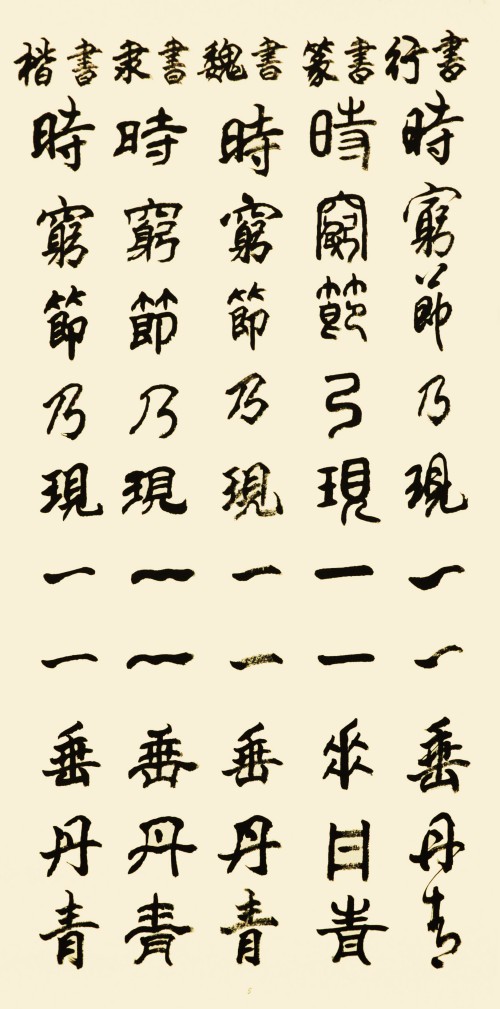 楷書 隶書 魏書 篆書 行書
時窮節乃現一一垂丹青
時窮節乃現一一垂丹青
時窮節乃現一一垂丹青
時窮節乃現一一垂丹青
時窮節乃現一一垂丹青